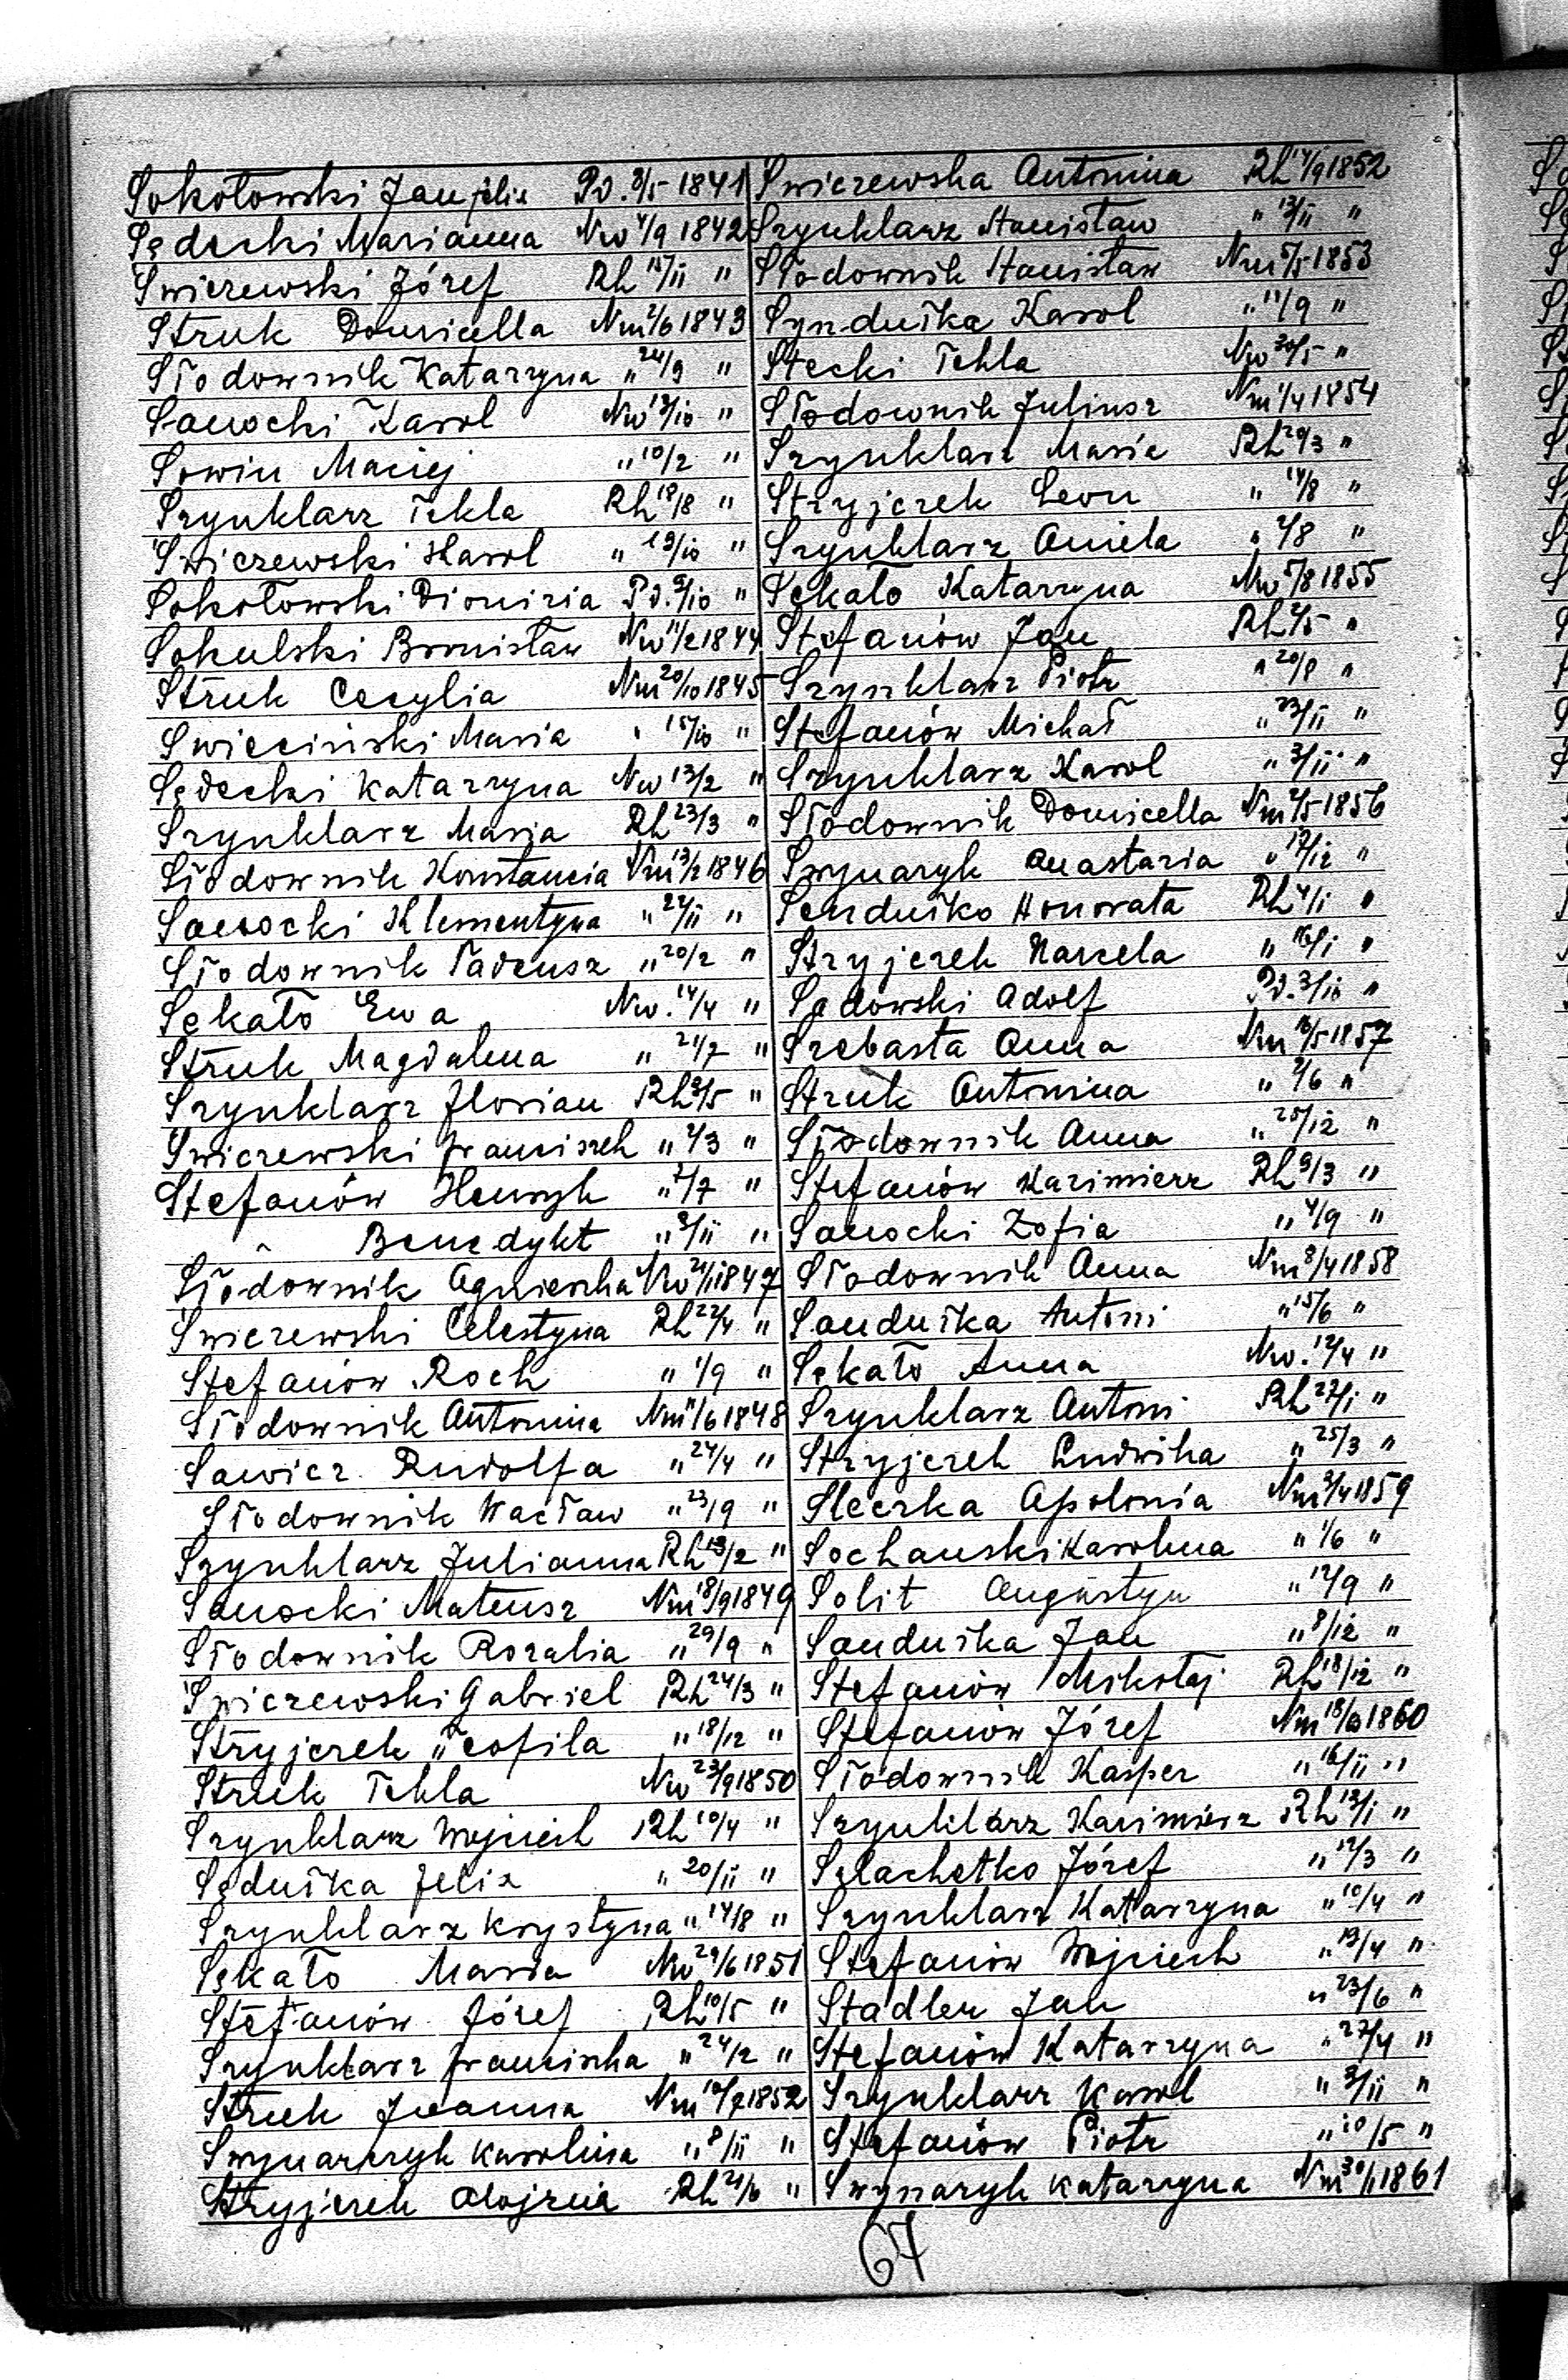 Sokołowski Jan felix Pd. 8/5 1841
Sędecki Marianna Nw 4/9 1842
Swiczewski Józef Rh 14/II "
Struk Domicella Nm 2/6 1843
Słodownik Katarzyna " 24/9 "
Sanocki Karol Nw 13/10 "
Sowin Maciej " 10/2 "
Szynklarz Tekla Rh 18/8 "
Swiczewski Karol " 19/10 "
Sokołowski Dionizia Pd. 9/10 "
Sokulski Bronisław Nw 11/2 1844
Struk Cecylia Nm 20/10 1845
Swieciński Maria " 15/10 "
Sędecki Katarzyna Nw 13/2 "
Szynklarz Maria Rh 23/3 "
Słodownik Konstancia Nm 13/2 1846
Sanocki Klementyna " 22/II "
Słodownik Tadeusz " 20/2 "
Sękato Ewa Nw. 14/4 "
Struk Magdalena " 21/7 "
Szynklarz Florian Rh 9/5 "
Swiczewski franciszek " 2/3 "
Stefanów Henryk " 2/7 "
" Benedykt " 3/II "
Słodownik Agnieszka Nw 21/1 1847
Swiczewski Celestyna Rh 22/4 "
Stefanów Roch " 1/9 "
Słodownik Antonina Nm 11/6 1848
Sawicz Rudolfa " 24/4 "
Słodownik Wacław " 23/9 "
Szynklarz Julianna Rh 13/2 "
Sanocki Mateusz Nm 18/9 1849
Słodownik Rozalia " 29/9 "
Swiczewski Gabriel Rh 24/3 "
Stryjczek Teofila " 18/12 "
Struk Tekla Nw 23/9 1850
Szynklarz Wojciech Rh 10/4 "
Sęduśka Felix " 20/II "
Szynklarz Krystyna " 14/8 "
Sękato Maria Nw 29/6 1851
Stefanów Józef Rh 10/5 "
Szynklarz franciszka " 24/2 "
Struk Joanna Nm 10/7 1852
Swynarczyk Karolina " 8/II "
Stryjczek Alojzia Rh 21/6 "
Swiczewska Antonina Rh 14/9 1852
Szynklarz Stanisław " 13/II "
Słodownik Stanisław Nm 5/5 1853
Synduśka Karol " 11/9 "
Stecki Tekla Nw 20/5 "
Słodownik Juliusz Nm 1/4 1854
Szynklarz Maria Rh 20/3 "
Stryjczek Leon " 14/8 "
Szynklarz Aniela " 2/8 "
Sękato Katarzyna Nw 5/8 1855
Stefanów Jan Rh 2/5 "
Szynklarz Piotr " 20/8 "
Stefanów Michał " 23/II "
Szynklarz Karol " 3/II "
Słodownik Domicella Nm 2/5 1856
Swynaryk Anastazia " 17/12 "
Senduśko Honorata Rh 4/1 "
Stryjczek Marcela " 16/1 "
Sadowski Adolf Pd. 3/10 "
Szebasta Anna Nm 16/5 1857
Struk Antonina " 9/6 "
Słodownik Anna " 25/12 "
Stefanów Kazimierz Rh 9/3 "
Sanocki Zofia " 4/9 "
Słodownik Anna Nm 8/4 1858
Sanduśka Antoni " 15/6 "
Sękato Anna Nw. 12/4 "
Szynklarz Antoni Rh 27/1 "
Stryjczek Ludwika " 25/3 "
Sleczka Apolonia Nm 3/4 1859
Sochanski Karolina " 1/6 "
Solit Augustyn " 12/9 "
Sanduśka Jan " 8/12 "
Stefanów Mikołaj Rh 18/12 "
Stefanów Józef Nm 18/10 1860
Słodownik Kasper " 16/II "
Szynklarz Kazimierz Rh 12/1 "
Szlachetko Józef " 12/3 "
Szynklarz Katarzyna " 10/4 "
Stefanów Wojciech " 13/4 "
Stadler Jan " 23/6 "
Stefanów Katarzyna " 27/4 "
Szynklarz Karol " 3/II "
Stefanów Piotr " 10/5 "
Swynaryk Katarzyna Nm 30/1 1861
67